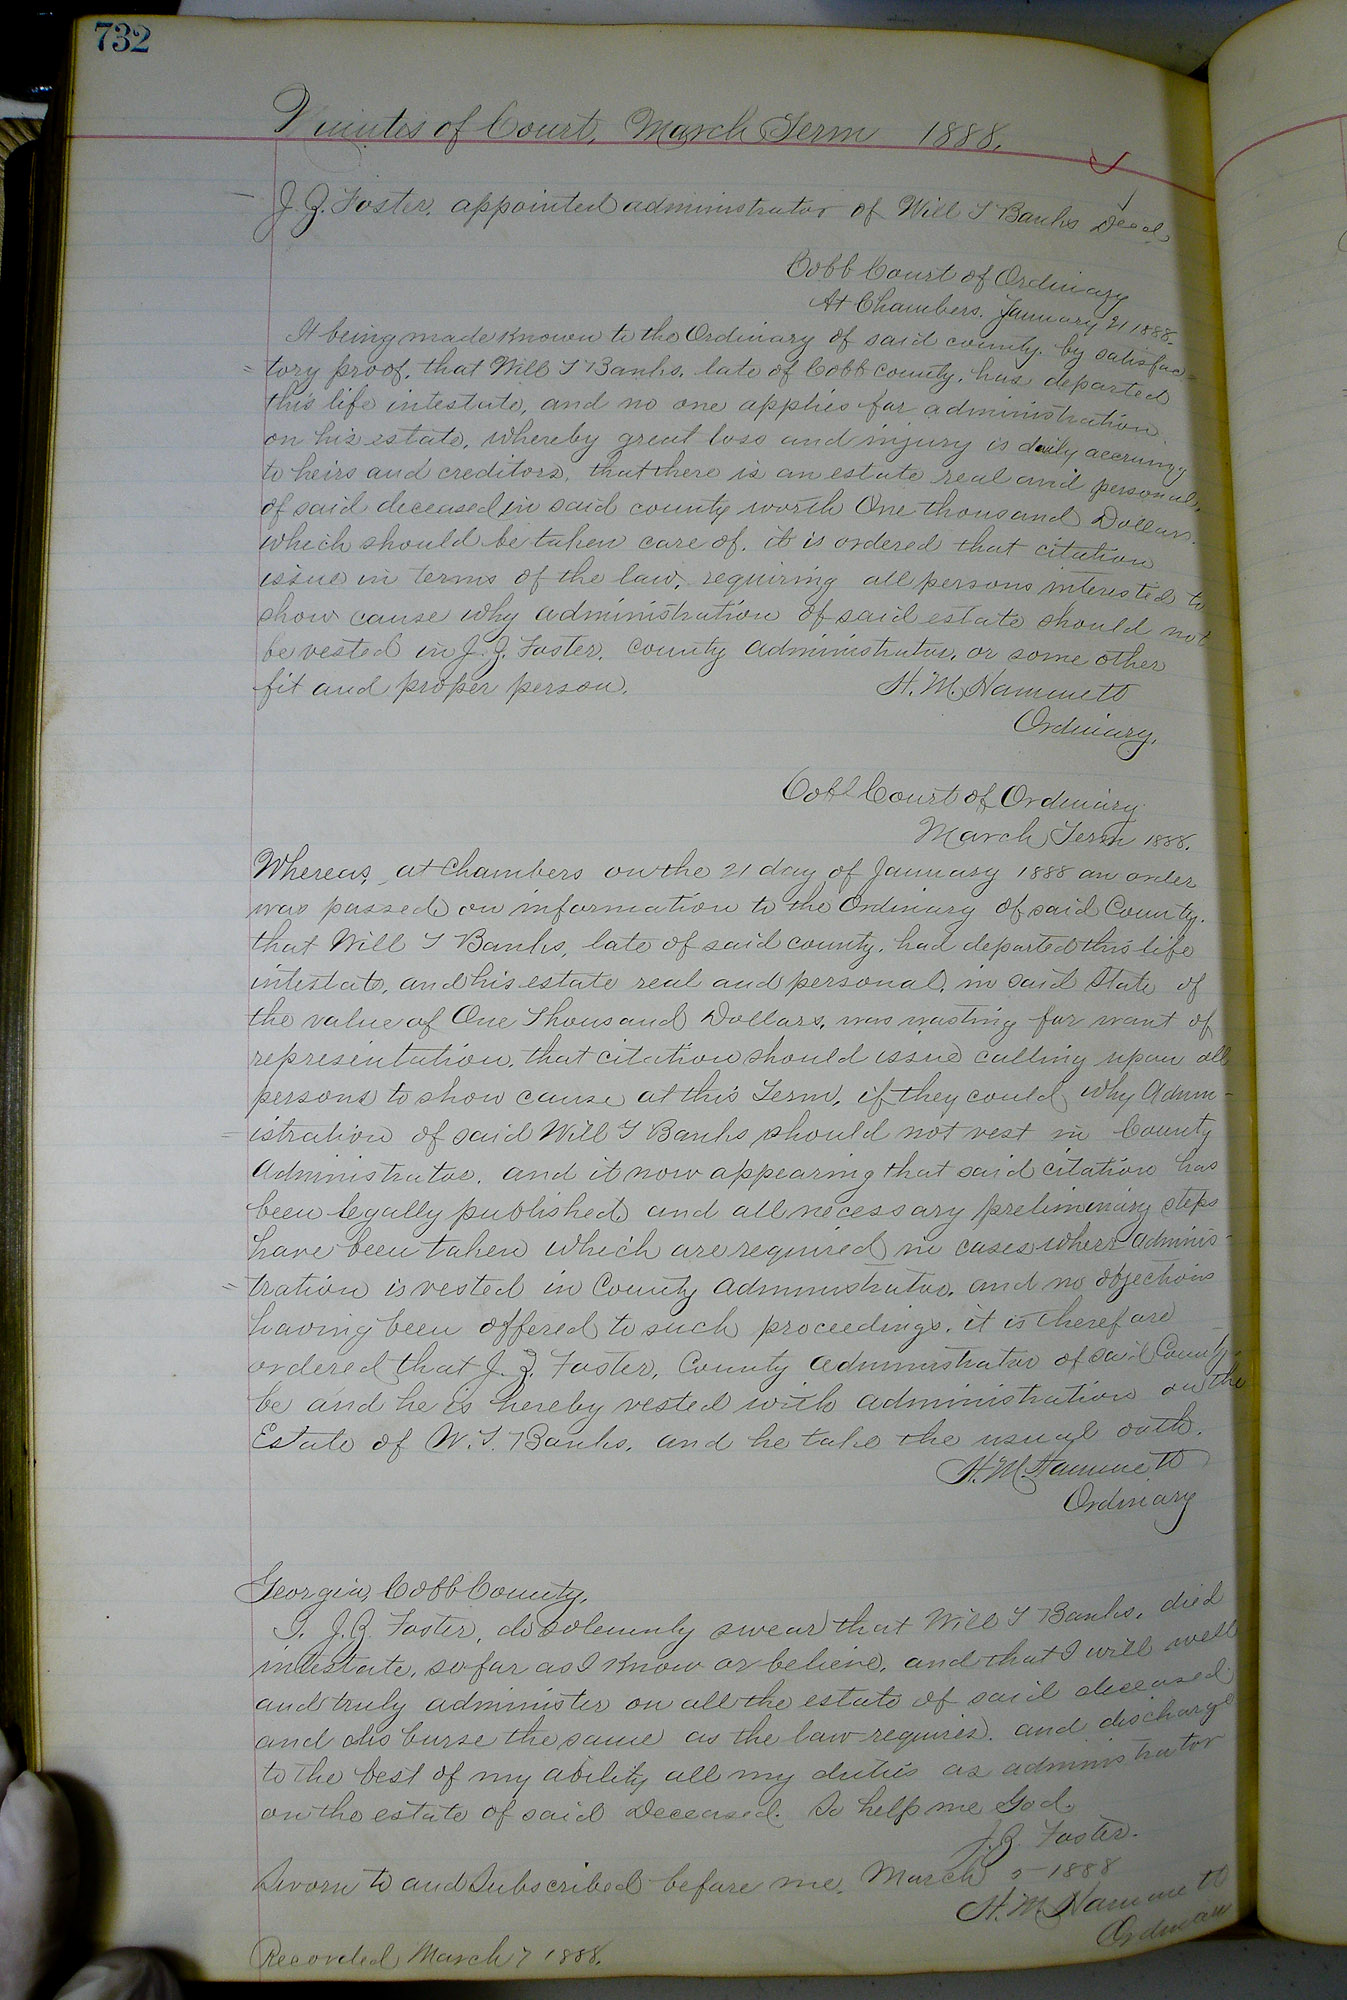 732
Minutes of Court, March Term 1888.
J. Z. Foster, appointed administrator of Will T Banks Decd,
Cobb Court of Ordinary
At Chambers. January 21 1888.
It being made known to the Ordinary of said county by satisfac=
tory proof, that Will T Banks, late of Cobb County, has departed
this life intestate, and no one applies for administration
on his estate, whereby great loss and injury is daily accruing
to heirs and creditors, that there is an estate real and personal,
of said deceased in said county worth One thousand Dollars.
which should be taken care of, it is ordered that citation
issue in terms of the law, requiring all persons interested to
show cause why administration of said estate should not
be vested in J. Z. Foster, County Administrator, or some other
fit and proper person.
H. M. Hammett
Ordinary,
Cobb Court of Ordinary
March Term 1888.
Whereas, at Chambers on the 21 day of January 1888 an order
was passed on information to the Ordinary of said County.
that Will T Banks, late of said county, had departed this life
intestate, and his estate real and personal, in said State of
the value of One Thousand Dollars, was wasting for want of
representation, that citation should issue calling upon all
persons to show cause at this Term, if they could, why Admin-
istration of said Will T Banks should not vest in County
Administrator, and it now appearing that said citation has
been legally published and all necessary preliminary steps
have been taken which are required in cases where adminis-
tration is vested in County Administrator, and no objections
having been offered to such proceedings, it is therefore
ordered that J. Z. Foster, County Administrator of said County
be and he is hereby vested with administration on the
Estate of W. T. Banks, and he take the usual oath.
H. M. Hammett
Ordinary
Georgia, Cobb County,
I, J. Z. Foster, do solemnly swear that Will T Banks, died
intestate, so far as I know or believe, and that I will well
and truly administer on all the estate of said deceased
and disburse the same as the law requires, and discharge
to the best of my ability all my duties as administrator
on the estate of said Deceased. So help me God.
J. Z. Foster.
Sworn to and Subscribed before me, March 5 1888
H. M. Hammett
Ordinary
Recorded March 7 1888.